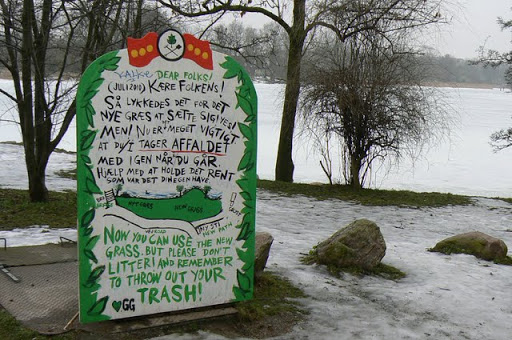 DEAR FOLKS!
(JULI 2010) KÆRE FOLKENS!
SÅ LYKKEDES DET FOR DET
NYE GRÆS AT SÆTTE SIG IGEN
MEN! NU ER MEGET VIGTIGT
AT DU/I TAGER AFFALDET
MED IGEN NÅR DU GÅR.
HJÆLP MED AT HOLDE DET RENT
SOM VAR DET DIN EGEN HAVE
NEW GRASS
NOW YOU CAN USE THE NEW
GRASS. BUT PLEASE DON'T
LITTER! AND REMEMBER
TO THROW OUT YOUR
TRASH!
GG